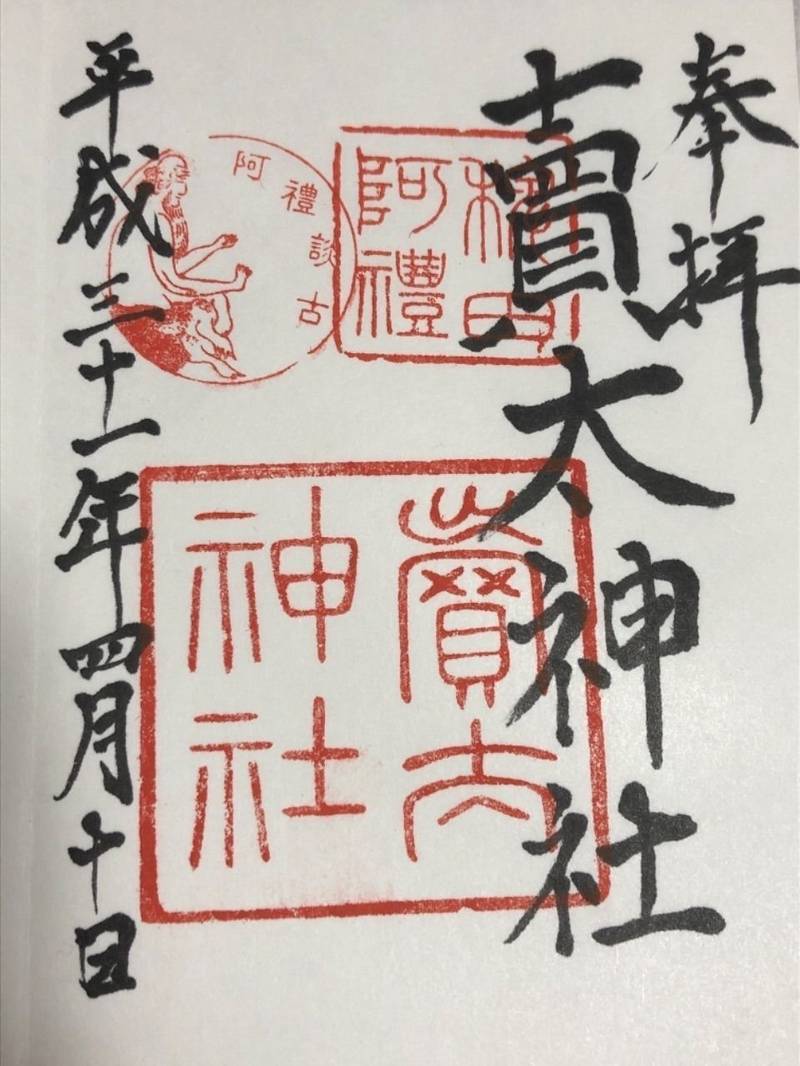 奉拝
賣太神社
稗田
阿禮
阿禮談古
賣太
神社
平成三十一年四月十日